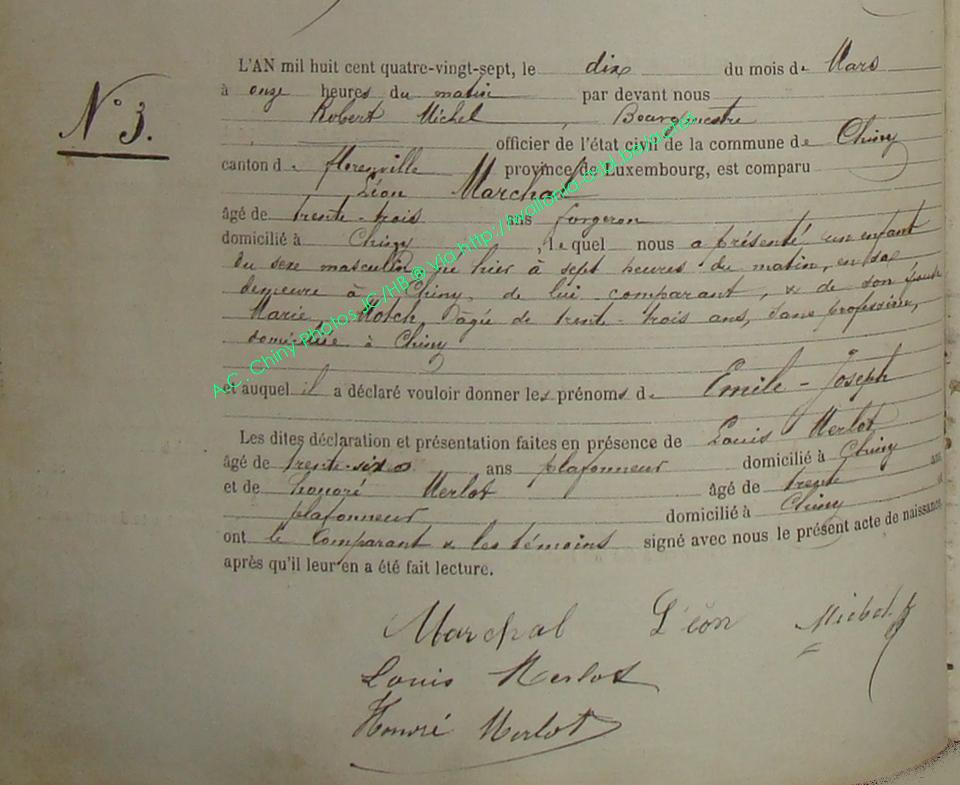 N° 3.
L'AN mil huit cent quatre-vingt-sept, le dix du mois de Mars
à onze heures du matin par devant nous
Robert Michel, Bourgmestre
officier de l'état civil de la commune de Chiny
canton de florenville province de Luxembourg, est comparu
Léon Marchal
âgé de trente-trois ans forgeron
domicilié à Chiny, lequel nous a présenté un enfant
du sexe masculin né hier à sept heures du matin, en sa
demeure à Chiny, de lui comparant, & de son épouse
Marie, âgée de trente-trois ans, sans profession,
domiciliée à Chiny
et auquel il a déclaré vouloir donner les prénoms de Emile - Joseph
Les dites déclaration et présentation faites en présence de Louis Merlot
âgé de trente-six ans plafonneur domicilié à Chiny
et de honoré Merlot âgé de trente ans
plafonneur domicilié à Chiny
ont le Comparant & les témoins signé avec nous le présent acte de naissance
après qu'il leur en a été fait lecture.
Marchal Léon Michel
Louis Merlot
Honoré Merlot
A.C. Chiny Photos JC/HB ® Via http://wallonia-